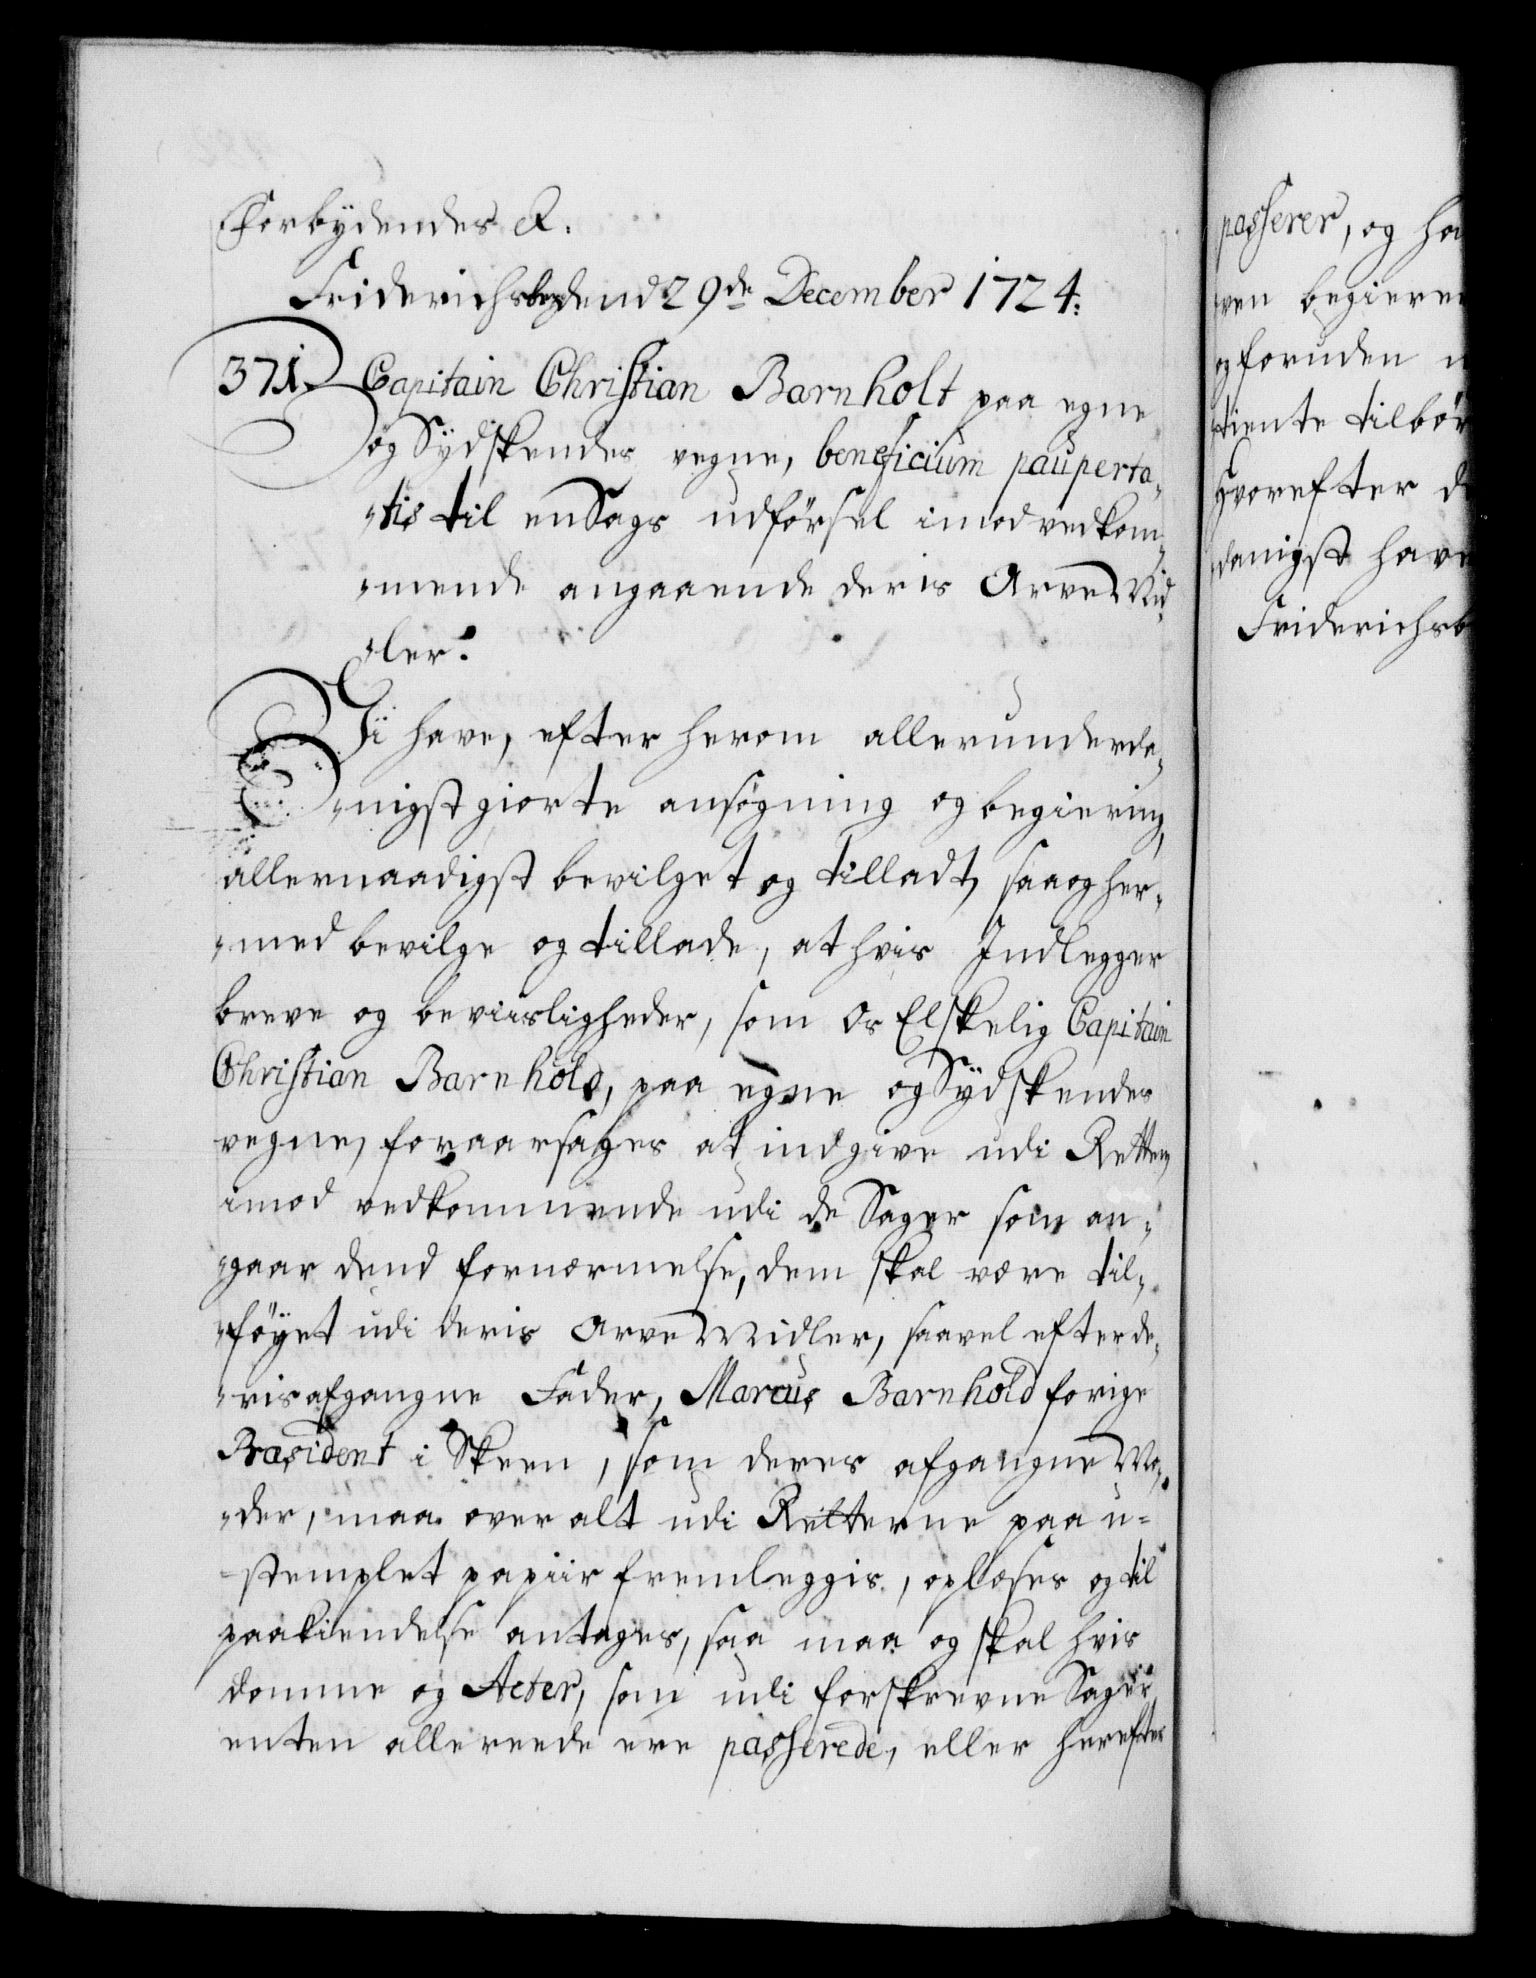 Forbydendes &.
Friderichsberg dend 29de December 1724.
371. Capitain Christian Barnholt paa egne
og Sÿdskendes vegne, beneficium pauperta„
„tis til en Sags udførsel imod vedkom„
„mende angaaende deris Arve Mid„
„ler.
Vi have, efter herom allerunderda„
„nigst giorte ansøgning og begiering,
allernaadigst bevilget og tilladt, saa og her„
„med bevilge og tillade, at hvis Indlegger
breve og beviisligheder, som Os Elskelig Capitain
Christian Barnhold, paa egne og Sÿdskendes
vegne, foraarsages at indgive udi Retten
imod vedkommende udi de Sager som an„
„gaar dend fornærmelse, dem skal være til„
„føÿet udi deris Arve Midler, saavel efter de„
„ris afgangne Fader, Marcus Barnhold forige
Præsident i Skeen, som deres afgangne Mo„
„der, maa over alt udi Retterne paa u„
stemplet papiir fremleggis, oplæses og til
paakiendelse antages, saa maa og skal hvis
domme og Acter, som udi forskrevne Sager
enten allereede ere passerede, eller herefter
passerer, og ha
ven begieren
og foruden
tiente tilbør
Hvorefter d
danigst have
Friderichsb